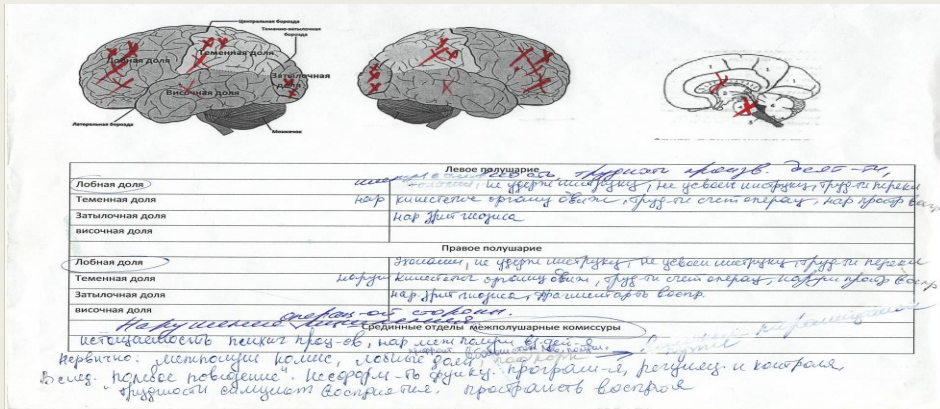 Центральная борозда
Теменно-затылочная борозда
Лобная доля
Теменная доля
Затылочная доля
Височная доля
Латеральная борозда
Мозжечок
Левое полушарие
импульсивность, трудности произв. деят-ти,
Лобная доля эхолалии, не удерж инструкц, не усвоен инструкц, труд-ти перекл
Теменная доля нар кинестетич органи движ, труд-ти счет операц, нар простр воспр
Затылочная доля нар зрит гнозиса
височная доля
Правое полушарие
Лобная доля Эхолалии, не удерж инструкц, не усвоен инструкц, труд-ти перекл
Теменная доля наруш кинестетич органи движ, труд-ти счет операц, наруш простр воспр
Затылочная доля нар. зрит гнозиса, фрагментарть воспр.
височная доля
Нарушение операц-ой стороны.
Срединные отделы межполушарные комиссуры
истощаемость психич проц-ов, нар межполуш вз-дей-я
первично: межполуш комис, лобные доли,
Вслед. полевое поведение". Несформ-ть функц. програм-я, регуляц. и контроля,
трудности слухового восприятия. пространств восприя